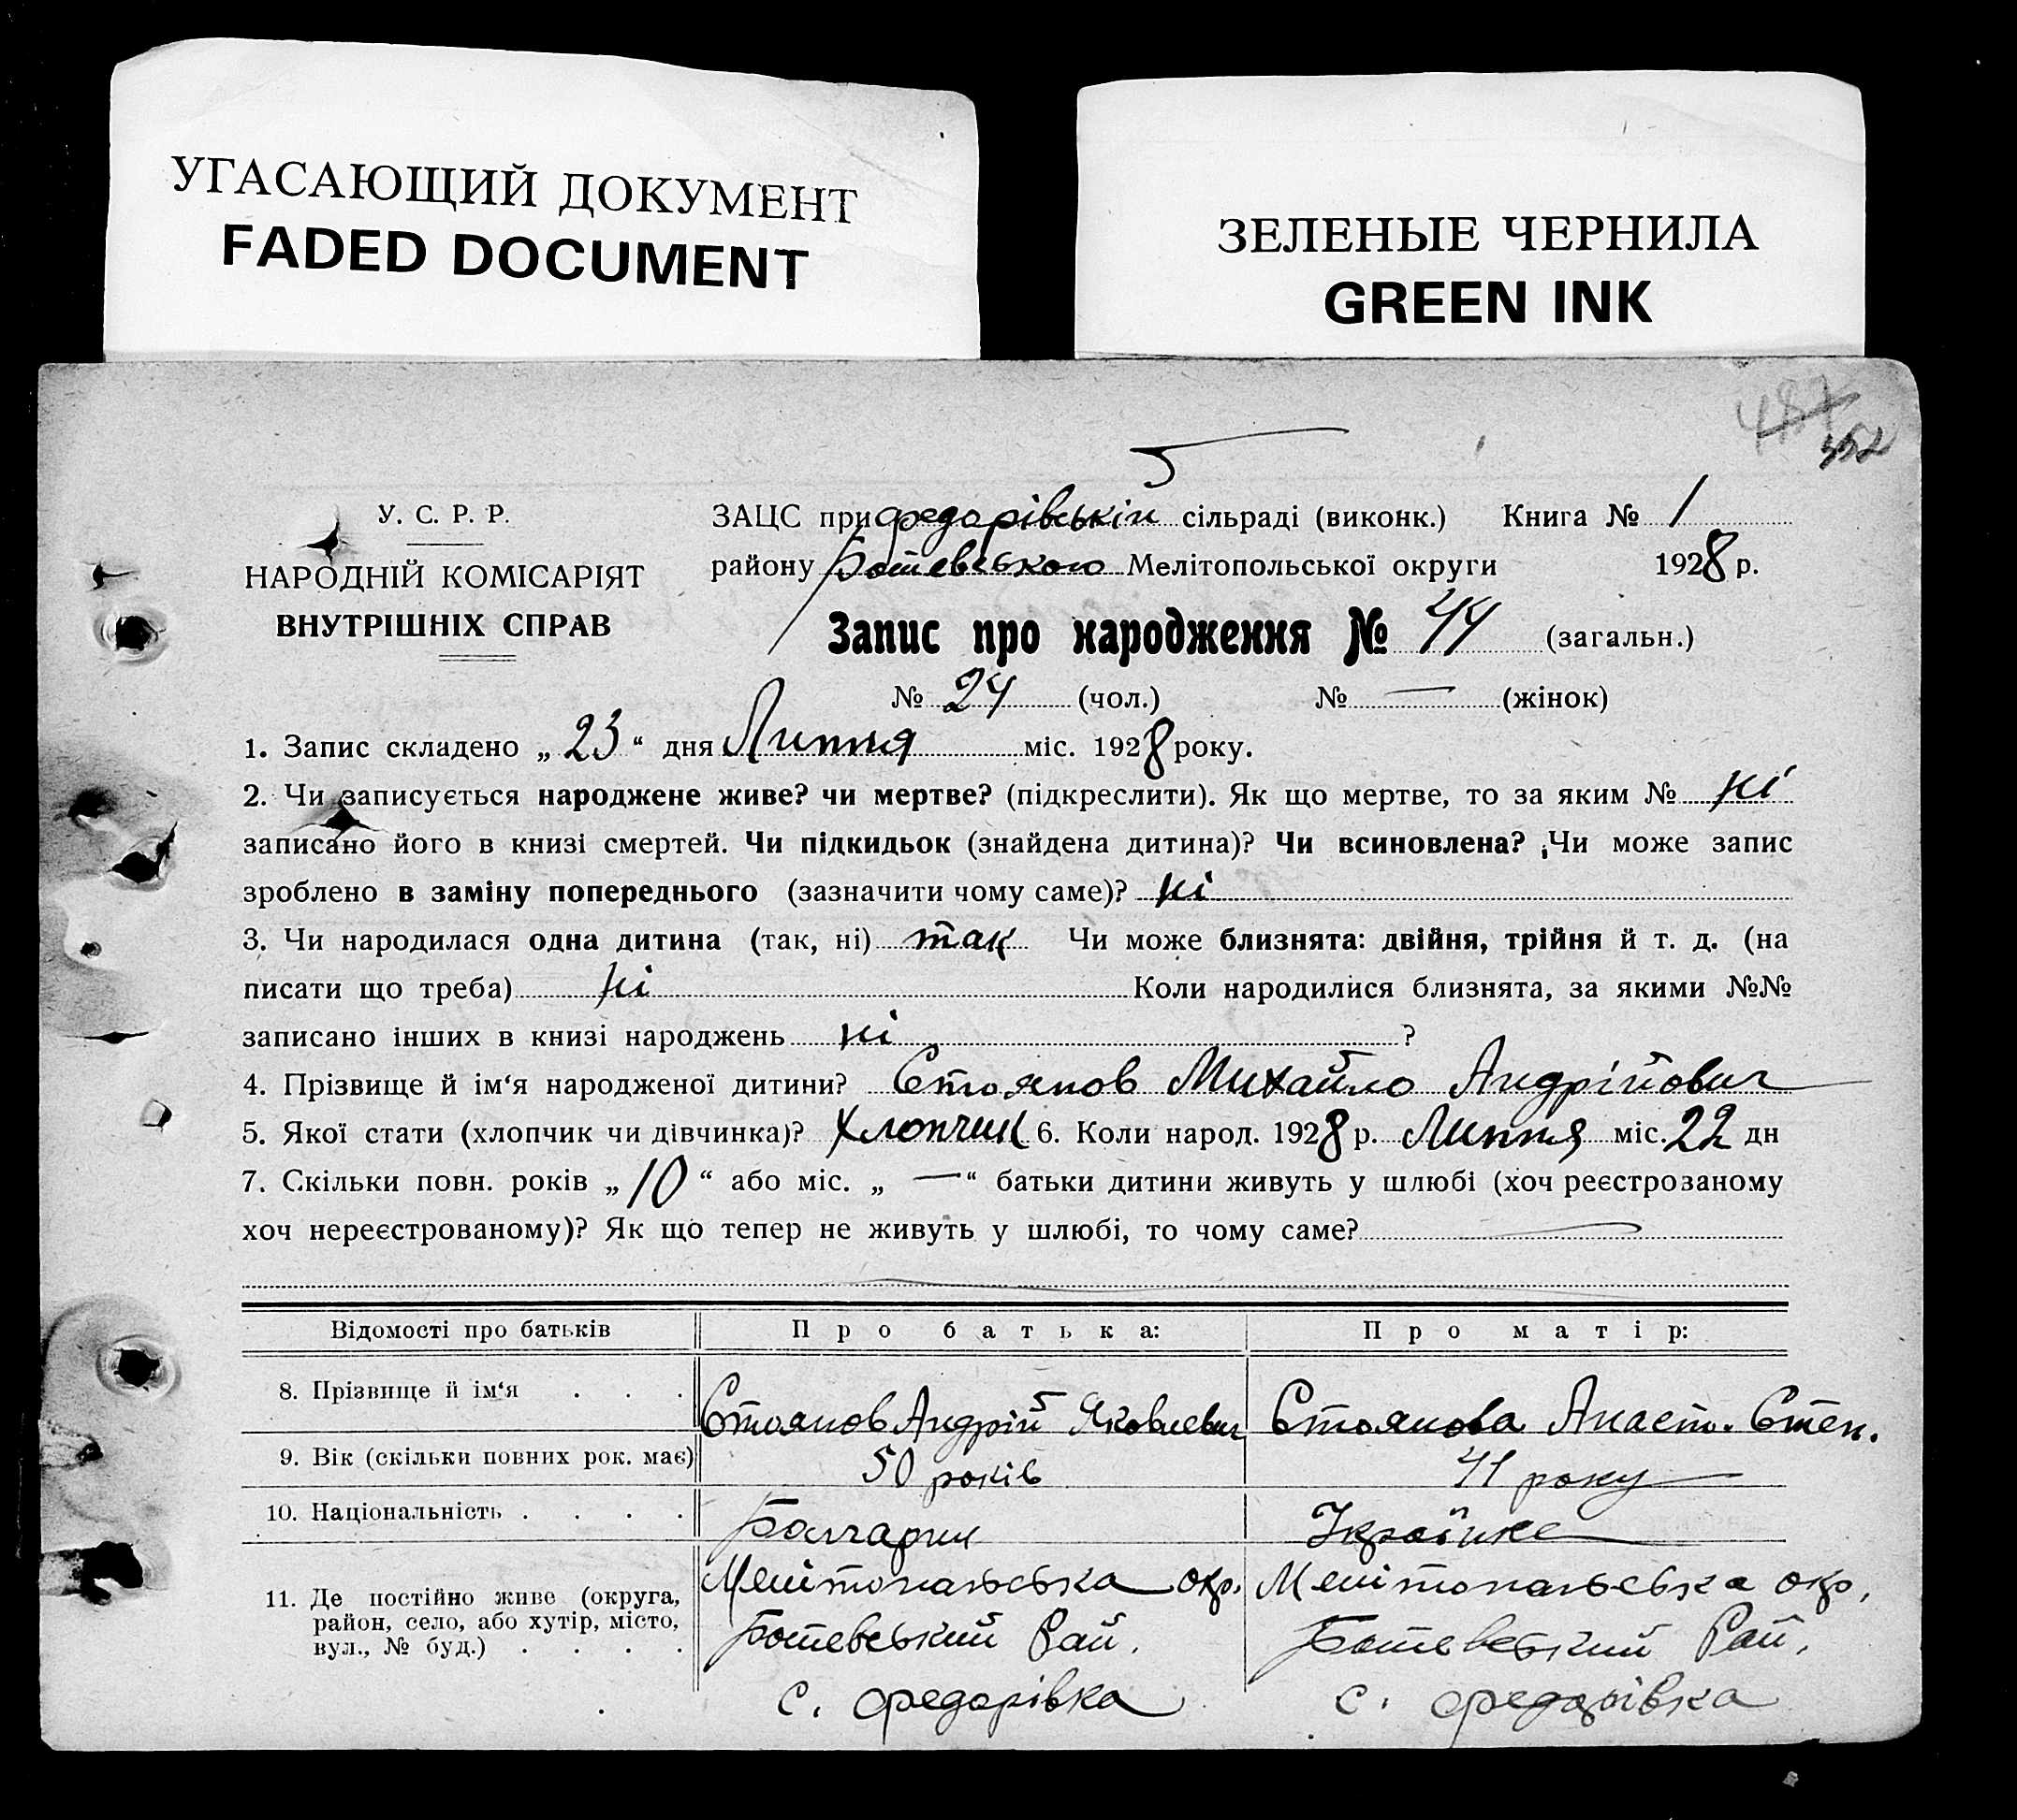 УГАСАЮЩИЙ ДОКУМЕНТ
FADED DOCUMENT
ЗЕЛЕНЫЕ ЧЕРНИЛА
GREEN INK
487
352
У. С. Р. Р.
НАРОДНІЙ КОМІСАРІЯТ
ВНУТРІШНІХ СПРАВ
ЗАЦС при Федорівській сільраді (виконк.) Книга № 1
району Ботевського Мелітопольської округи 1928 р.
Запис про народження № 44 (загальн.)
№ 24 (чол.) № — (жінок)
1. Запис складено „ 23 “ дня Липня міс. 1928 року.
2. Чи записується народжене живе? чи мертве? (підкреслити). Як що мертве, то за яким № ні
записано його в книзі смертей. Чи підкидьок (знайдена дитина)? Чи всиновлена? Чи може запис
зроблено в заміну попереднього (зазначити чому саме)? ні
3. Чи народилася одна дитина (так, ні) так Чи може близнята: двійня, трійня й т. д. (на
писати що треба) ні Коли народилися близнята, за якими №№
записано інших в книзі народжень ні ?
4. Прізвище й ім‘я народженої дитини? Стоянов Михайло Андрійович
5. Якої стати (хлопчик чи дівчинка)? Хлопчик 6. Коли народ. 1928 р. Липня міс. 22 дн
7. Скільки повн. років „ 10 “ або міс. „ — “ батьки дитини живуть у шлюбі (хоч реєстрозаному
хоч нереєстрованому)? Як що тепер не живуть у шлюбі, то чому саме? —
Відомості про батьків Про батька: Про матір:
8. Прізвище й ім‘я . . . Стоянов Андрій Яковлевич Стоянова Анаст. Степ.
9. Вік (скільки повних рок. має) 50 років 41 року
10. Національність . . . . Болгарин Українка
11. Де постійно живе (округа, район, село, або хутір, місто, вул., № буд.) . . . .
Мелітопольська окр.
Ботевський Рай.
с. Федорівка
Мелітопольська окр.
Ботевський Рай.
с. Федорівка